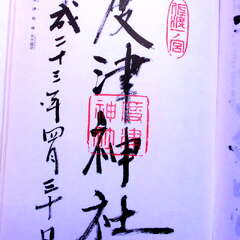 佐渡一ノ宮
度津神社
度津神社
成二十三年四月三十日